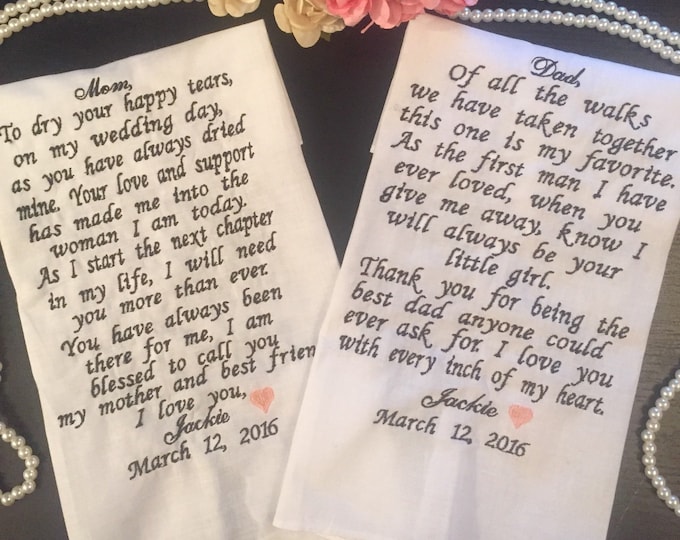 Mom,
To dry your happy tears,
on my wedding day,
as you have always dried
mine. Your love and support
has made me into the
woman I am today.
As I start the next chapter
in my life, I will need
you more than ever.
You have always been
there for me, I am
blessed to call you
my mother and best friend
I love you,
Jackie
March 12, 2016
Dad,
Of all the walks
we have taken together
this one is my favorite.
As the first man I have
ever loved, when you
give me away, know I
will always be your
little girl.
Thank you for being the
best dad anyone could
ever ask for. I love you
with every inch of my heart.
Jackie
March 12, 2016